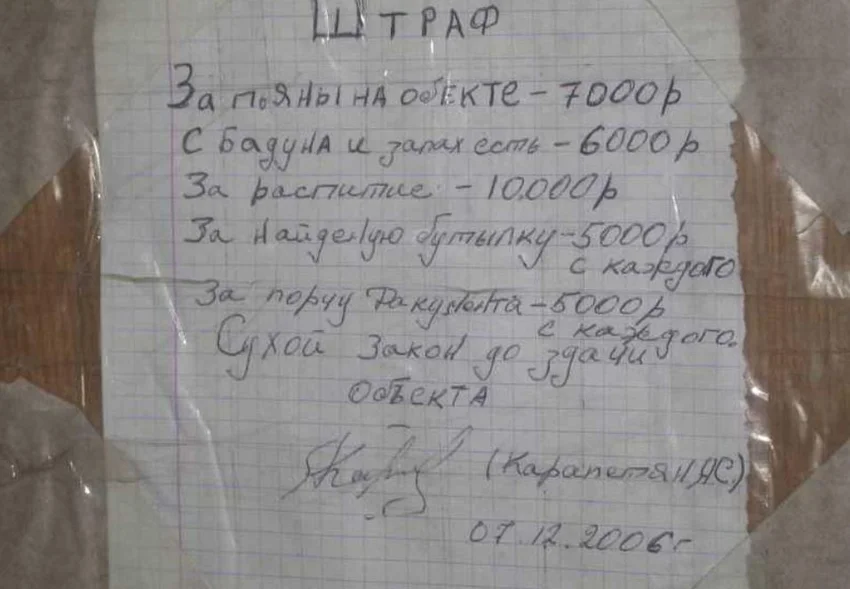 ШТРАФ
За пьяны на обекте - 7000 р
с бадуна и запах есть - 6000 р
За распитие - 10.000 р
За найденую бутылку - 5000 р
с каждого
За порчу Дакумента - 5000 р
с каждого.
Сухой закон до здачи
объекта
(Карапетян АС)
07.12.2006 г